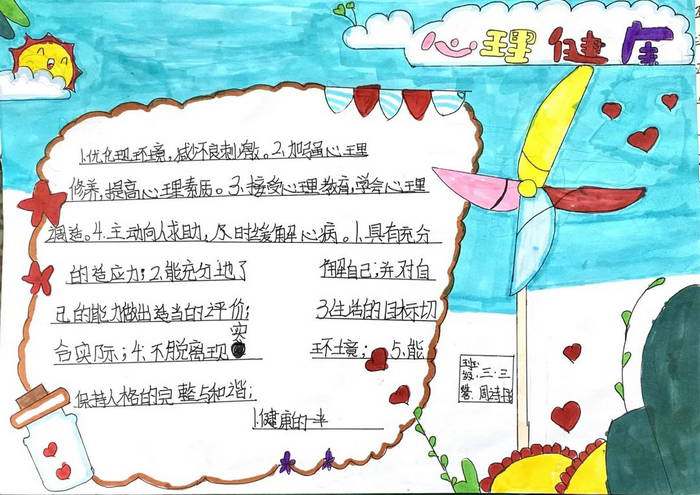 心理健康
1.优化现环境，减少不良刺激。2.加强心理
修养，提高心理素质。3.接受心理教育，学会心理
调适。4.主动向人求助，及时缓解心病。1.具有充分
的适应力；2.能充分地了 解自己；并对自
己的能力做出适当的评价； 3.生活的目标切
合实际；4.不脱离现实 环境； 5.能
保持人格的完整与和谐；
1.健康的一半
班级：三.三
周诗